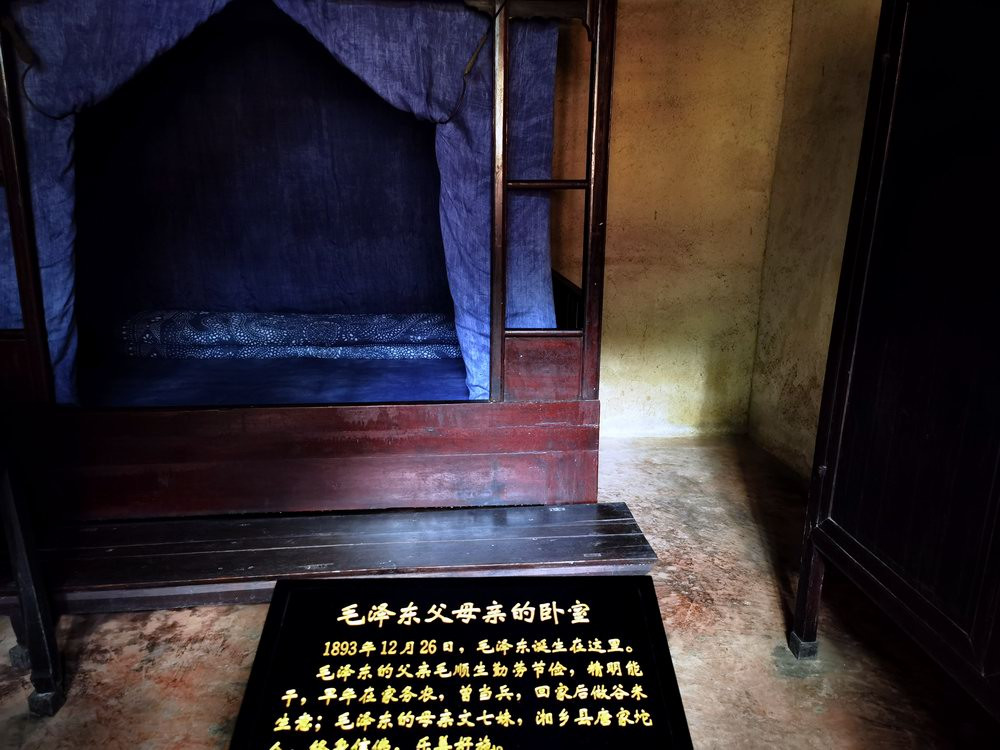 毛泽东父母亲的卧室
1893年12月26日，毛泽东诞生在这里。
毛泽东的父亲毛顺生勤劳节俭，精明能
干，早年在家务农，曾当兵，回家后做谷米
生意；毛泽东的母亲文七妹，湘乡县唐家圫
人，终身信佛，乐善好施。